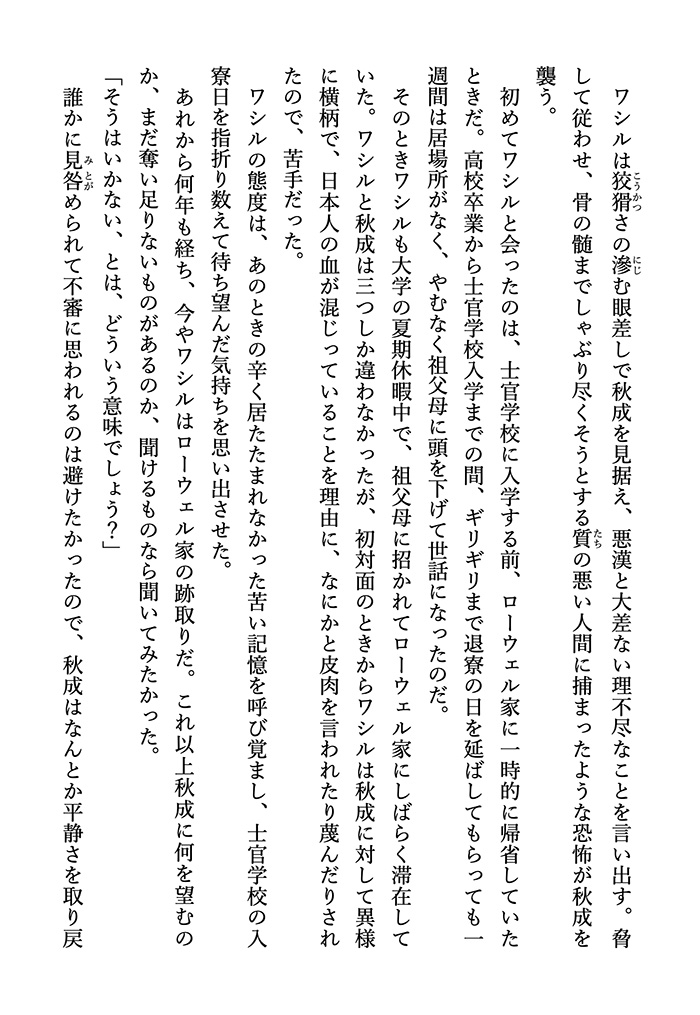 ワシルは狡猾さの滲む眼差しで秋成を見据え、悪漢と大差ない理不尽なことを言い出す。脅
して従わせ、骨の髄までしゃぶり尽くそうとする質の悪い人間に捕まったような恐怖が秋成を
襲う。
初めてワシルと会ったのは、士官学校に入学する前、ローウェル家に一時的に帰省していた
ときだ。高校卒業から士官学校入学までの間、ギリギリまで退寮の日を延ばしてもらっても一
週間は居場所がなく、やむなく祖父母に頭を下げて世話になったのだ。
そのときワシルも大学の夏期休暇中で、祖父母に招かれてローウェル家にしばらく滞在して
いた。ワシルと秋成は三つしか違わなかったが、初対面のときからワシルは秋成に対して異様
に横柄で、日本人の血が混じっていることを理由に、なにかと皮肉を言われたり蔑んだりされ
たので、苦手だった。
ワシルの態度は、あのときの辛く居たたまれなかった苦い記憶を呼び覚まし、士官学校の入
寮日を指折り数えて待ち望んだ気持ちを思い出させた。
あれから何年も経ち、今やワシルはローウェル家の跡取りだ。これ以上秋成に何を望むの
か、まだ奪い足りないものがあるのか、聞けるものなら聞いてみたかった。
「そうはいかない、とは、どういう意味でしょう？」
誰かに見咎められて不審に思われるのは避けたかったので、秋成はなんとか平静さを取り戻